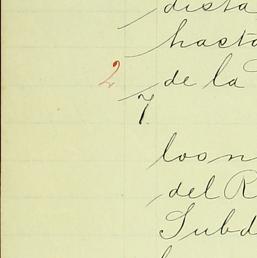 dista
hasta
2 de la
7.
loon
del R
Subd